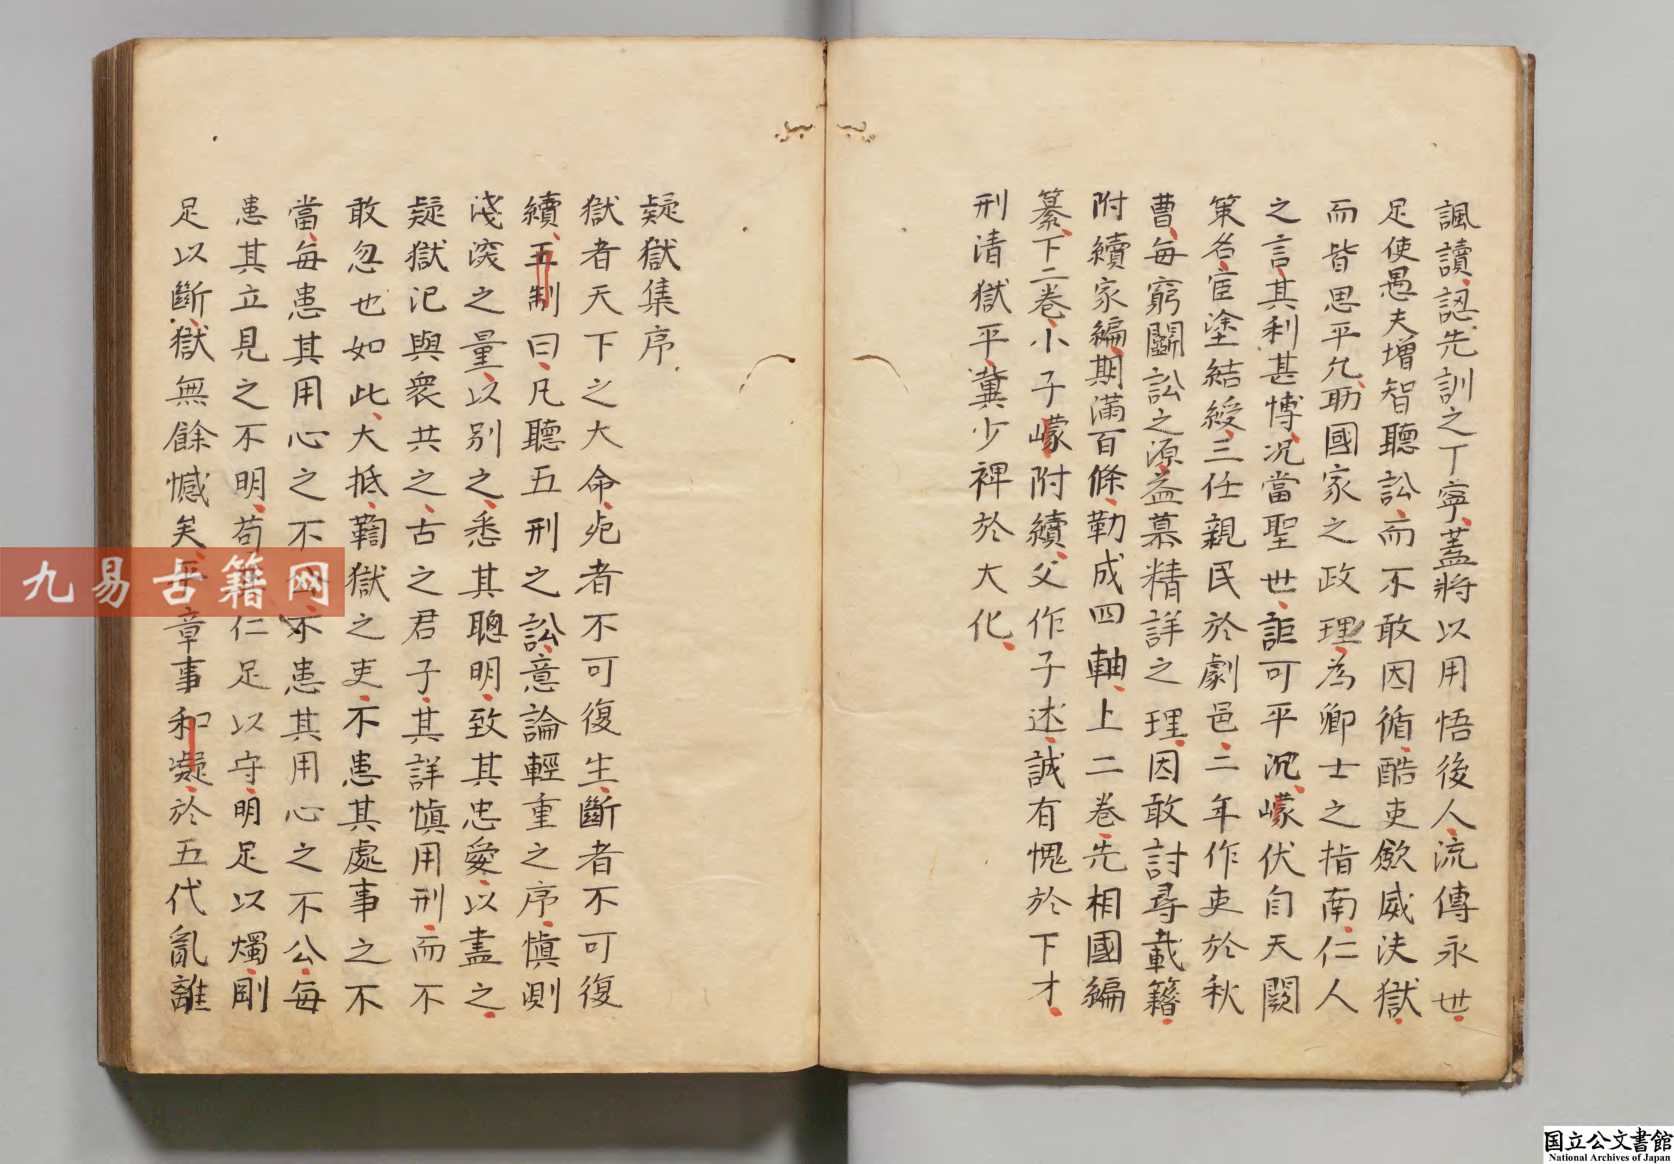 諷讀認先訓之丁寧蓋將以用悟後人流傳永世
足使愚夫增智聽訟而不敢因循酷吏歛威決獄
而皆思平允耶國家之政理為卿士之指南仁人
之言其利甚博况當聖世詎可平沉㠓伏自天闕
策名宦塗結綬三任親民於劇邑二年作吏於秋
曹每窮鬬訟之源益慕精詳之理因敢討尋載籍
附續家編期滿百條勒成四軸上二卷先相國編
纂下二卷小子㠓附續父作子述誠有愧於下才
刑清獄平冀少裨於大化
疑獄集序
獄者天下之大命死者不可復生斷者不可復
續五制曰凡聽五刑之訟意論輕重之序慎測
淺深之量以別之悉其聰明致其忠愛以盡之
疑獄汜與衆共之古之君子其詳慎用刑而不
敢忽也如此大抵鞫獄之吏不患其處事之不
當每患其用心之不不患其用心之不公每
患其立見之不明苟仁足以守明足以燭剛
足以斷獄無餘憾矣章事和凝於五代亂離
九易古籍网
国立公文書館
National Archives of Japan